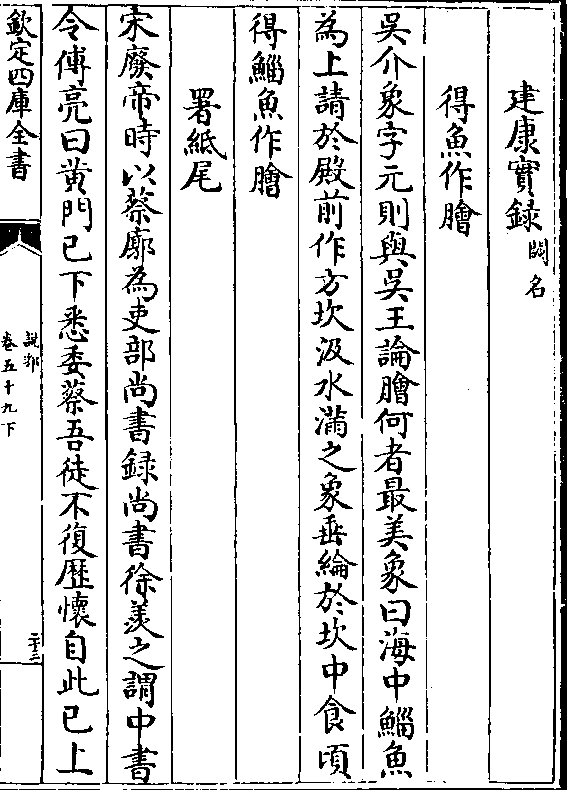 建康實録闕名
得魚作膾
吳介象字元則與吳王論膾何者最美象曰海中鯔魚
為上請於殿前作方坎汲水滿之象垂綸於坎中食頃
得鯔魚作膾
署紙尾
宋廢帝時以蔡廓為吏部尚書録尚書徐羨之謂中書
令傅亮曰黄門已下悉委蔡吾徒不復歴懷自此已上
欽定四庫全書
說郛
卷五十九下
二十三